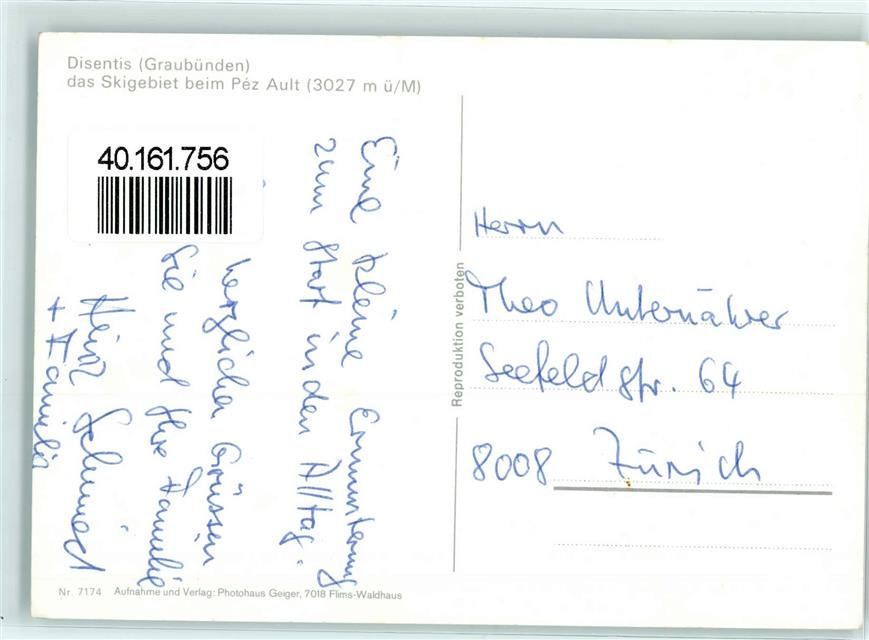 Disentis (Graubünden)
das Skigebiet beim Péz Ault (3027 m ü/M)
40.161.756
Eine kleine Ermunterung
zum Start in den Alltag.
herzlichen Grüssen
Sie und Ihre Familie
Heinz
+ Familie
Reproduktion verboten
Herrn
Theo Unternährer
Seefeldstr. 64
8008 Zürich
Nr. 7174 Aufnahme und Verlag: Photohaus Geiger, 7018 Flims-Waldhaus